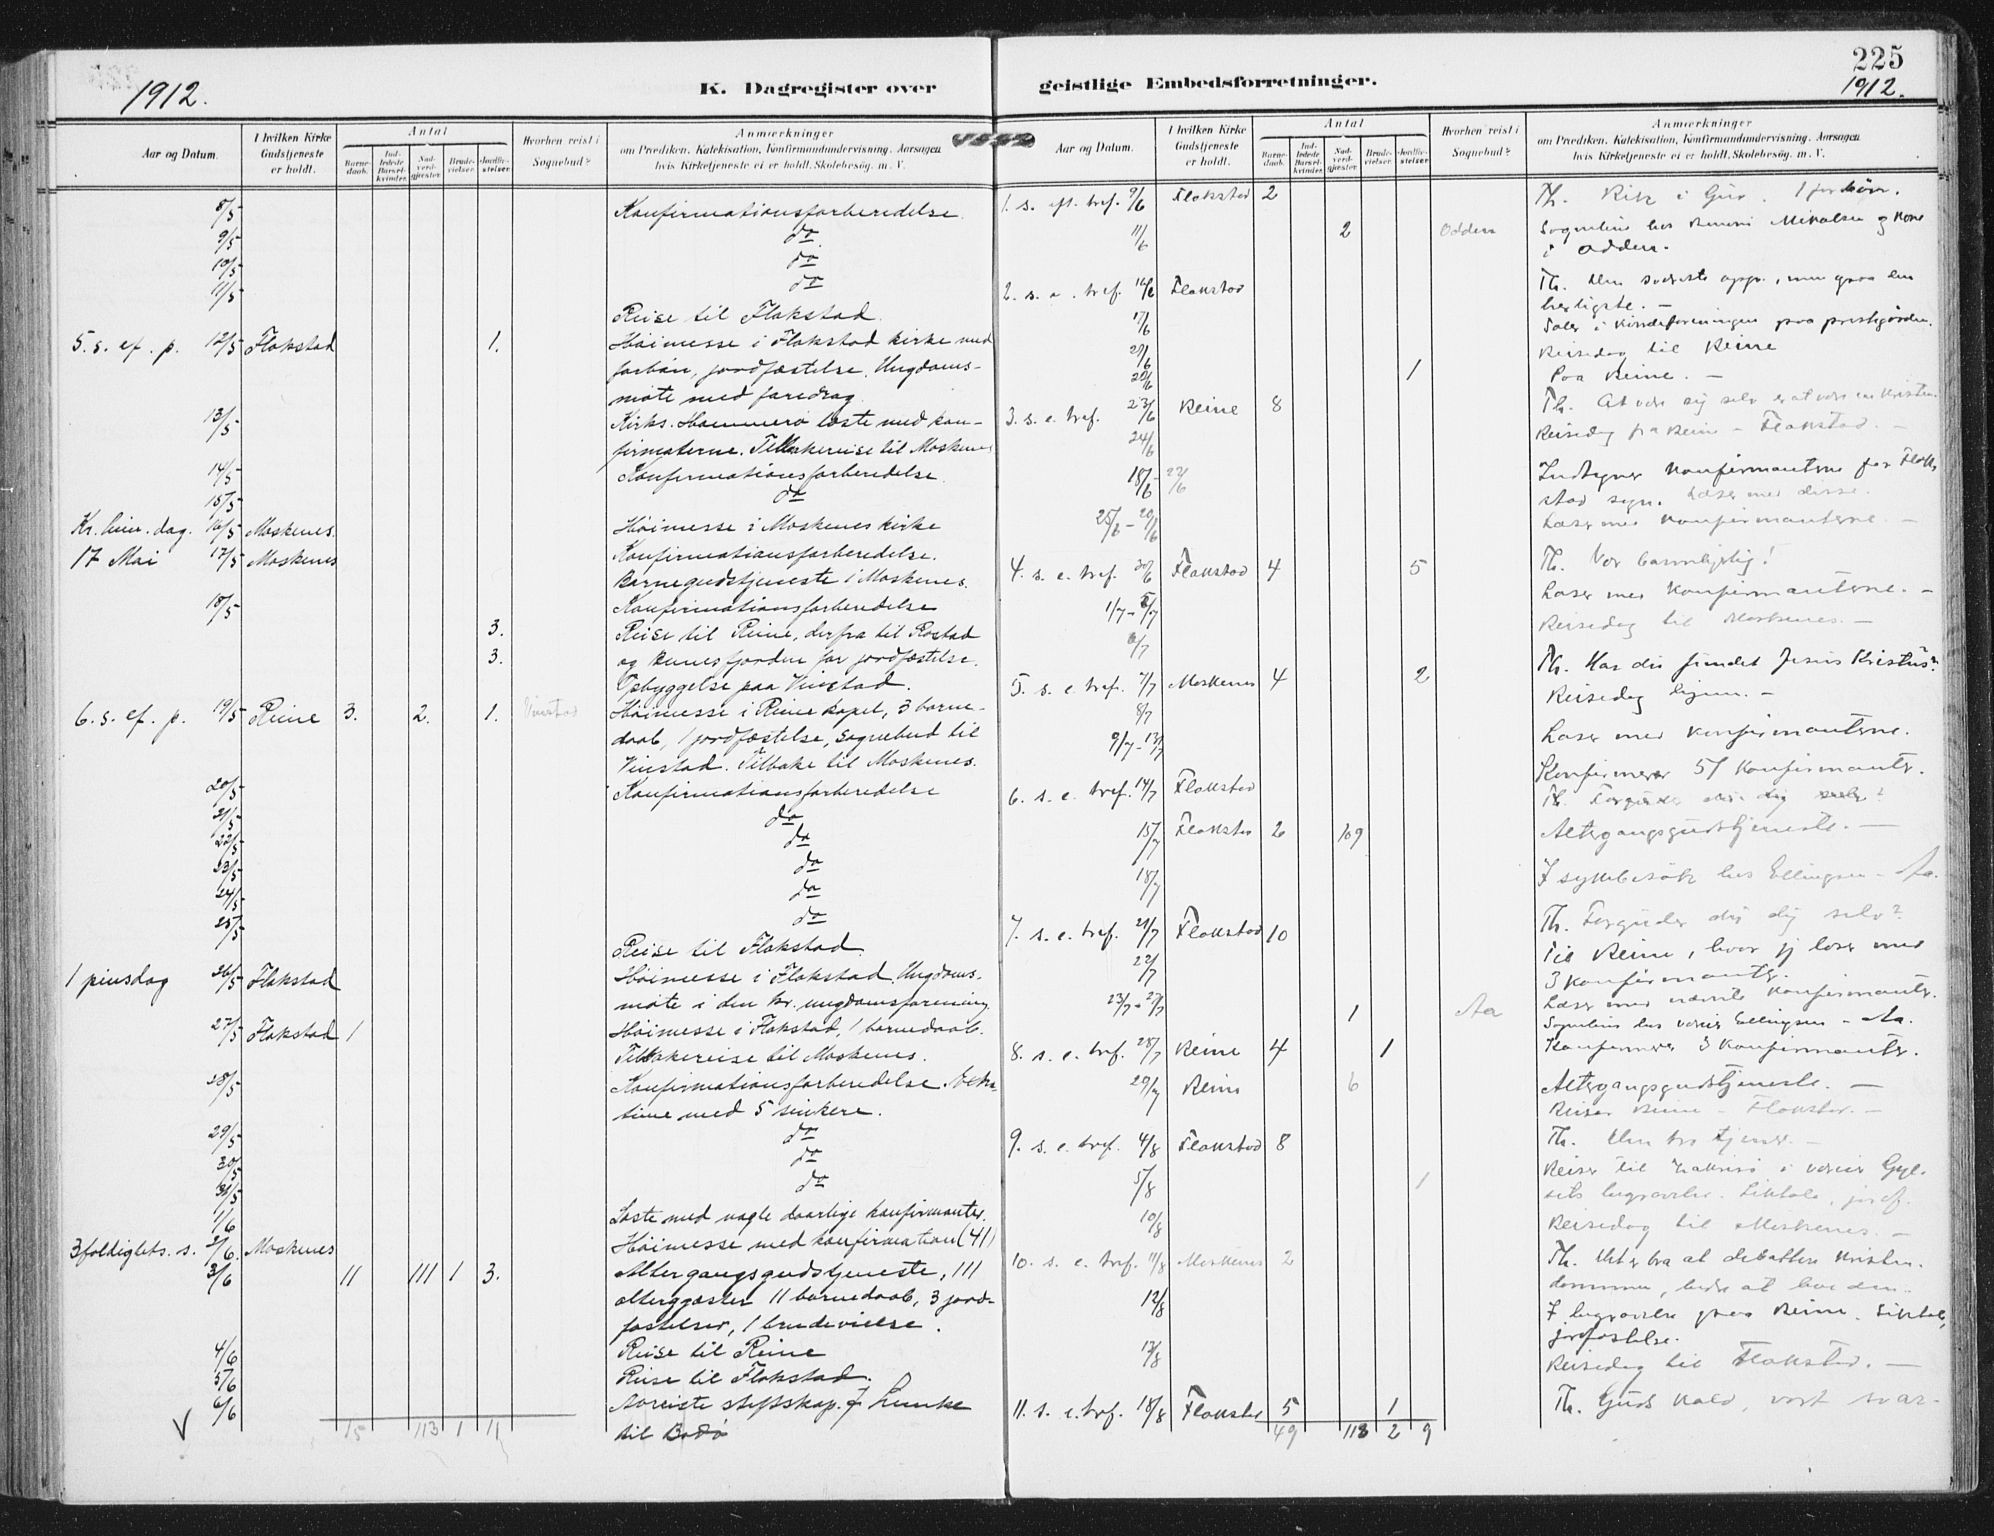 1912.
K. Dagregister over
Aar og Datum.
I hvilken Kirke Gudstjeneste er holdt.
Antal
Barnedaab.
Indledede Barselkvinder.
Nadverdgjester.
Brudevielser.
Jordfæstelser.
Hvorhen reist i Sognebud?
Anmærkninger
om Prædiken, Katekisation, Konfirmandundervisning, Aarsagen
hvis Kirketjeneste ei er holdt, Skolebesøg, m. V.
8/5 Konfirmationsforberedelse
9/5 do
10/5 do
11/5 do
Reise til Flakstad
5. s. ef. p. 12/5 Flakstad 1. Høimesse i Flakstad kirke med
forbøn, jordfæstelse. Ungdoms-
møte med foredrag
13/5 Kirks. Hammerø læste med kon-
firmaterne. Tilbakereise til Moskenes
14/5 Konfirmationsforberedelse.
15/5 do
Kr. him. dag. 16/5 Moskenes. Høimesse i Moskenes kirke
17 Mai 17/5 Moskenes Konfirmationsforberedelse.
Barnegudstjeneste i Moskenes.
18/5 Konfirmationsforberedelse
3. Reise til Reine, derfra til Rostad
3. og Bunesfjorden for jordfæstelse.
Opbyggelse paa Vinstad.
6. s. ef. p. 19/5 Reine 3. 2. 1. Vinstad Høimesse i Reine kapel, 3 barne-
daab, 1 jordfæstelse, sognebud til
Vinstad. Tilbake til Moskenes.
20/5 Konfirmationsforberedelse
21/5 do
22/5 do
23/5 do
24/5 do
25/5 do
Reise til Flakstad
1 pinsdag 26/5 Flakstad Høimesse i Flakstad. Ungdoms-
møte i den kr. ungdomsforening
27/5 Flakstad 1 Høimesse i Flakstad, 1 barnedaab.
Tilbakereise til Moskenes.
28/5 Konfirmationsforberedelse.
time med 5 sinkere.
29/5 do
30/5 do
31/5 do
1/6 Læste med nogle daarlige konfirmanter.
3foldighets. s. 2/6. Moskenes Høimesse med konfirmation (41)
3/6 11 111 1 3. Altergangsgudstjeneste, 111
altergjæster 11 barnedaab, 3 jord-
fæstelser, 1 brudevielse.
4/6 Reise til Reine
5/6 Reise til Flakstad.
6/6 Avreiste stiftskap.
til Bodø
15 113 1 11
225
1912.
geistlige Embedsforretninger.
Aar og Datum.
I hvilken Kirke Gudstjeneste er holdt.
Antal
Barnedaab.
Indledede Barselkvinder.
Nadverdgjester.
Brudevielser.
Jordfæstelser.
Hvorhen reist i Sognebud?
Anmærkninger
om Prædiken, Katekisation, Konfirmandundervisning, Aarsagen
hvis Kirketjeneste ei er holdt, Skolebesøg, m. V.
1. s. eft. tref. 9/6 Flakstad 2 Th. Rik i Gud.
11/6 2 Odden Sognebud hos Mikalsen og kone
i Odden.
2. s. e. tref. 16/6 Flakstad Th. Den sværeste opgv., men ogsaa den
herligste. -
17/6 Taler i Kvindeforeningen paa prestegården.
Reisedag til Reine
1 Paa Reine. -
3. s. e. tref. 23/6 Reine 8 Th. At være sig selv er at være en Kristen.
24/6 Reisedag fra Reine - Flakstad. -
18/6 - 22/6 Indtegner Konfirmanterne for Flak-
stad sogn. Læser med disse.
25/6 - Læser med Konfirmanterne. -
4. s. e. tref. 30/6 Flakstad 4 5 Th. Vær barmhjertig!
1/7 - 5/7 Læser med Konfirmanterne. -
6/7 Reisedag til Moskenes. -
5. s. e. tref. 7/7 Moskenes 4 2 Th. Har du fundet Jesus Kristus?
8/7 Reisedag hjem. -
9/7 - 13/7 Læser med konfirmanterne.
6. s. e. tref. 14/7 Flakstad Konfirmerer 51 Konfirmanter.
Th. Forguder du dig selv?
15/7 Flakstad 2 109 Altergangsgudstjeneste. -
18/7 I sykebesøk hos Ellingsen - Aa.
7. s. e. tref. 21/7 Flakstad 10 Th. Forguder du dig selv?
22/7 Til Reine, hvor jeg læser med
3 konfirmanter.
23/7 - 27/7 Læser med nævnte Konfirmanter.
1 Aa Sognebud hos Ellingsen - Aa.
8. s. e. tref. 28/7 Reine 4 1 Konfirmerer 3 konfirmanter.
29/7 Reine 6 Altergangsgudstjeneste. -
Reiser Reine - Flakstad. -
9. s. e. tref. 4/8 Flakstad 8 Th. Den tro tjener. -
5/8 1 Reiser til
begravelse. Liktale, jordf.
10/8 Reisedag til Moskenes. -
10. s. e. tref. 11/8 Moskenes 2 Th. Det er bra at debattere Kristen-
dommen, bedre at leve den.
12/8 I begravelse paa Reine. Liktale,
jordfæstelse.
13/8 Reisedag til Flakstad. -
11. s. e. tref. 18/8 Flakstad 5 1 Th. Guds kald, vort svar -
49 118 2 9